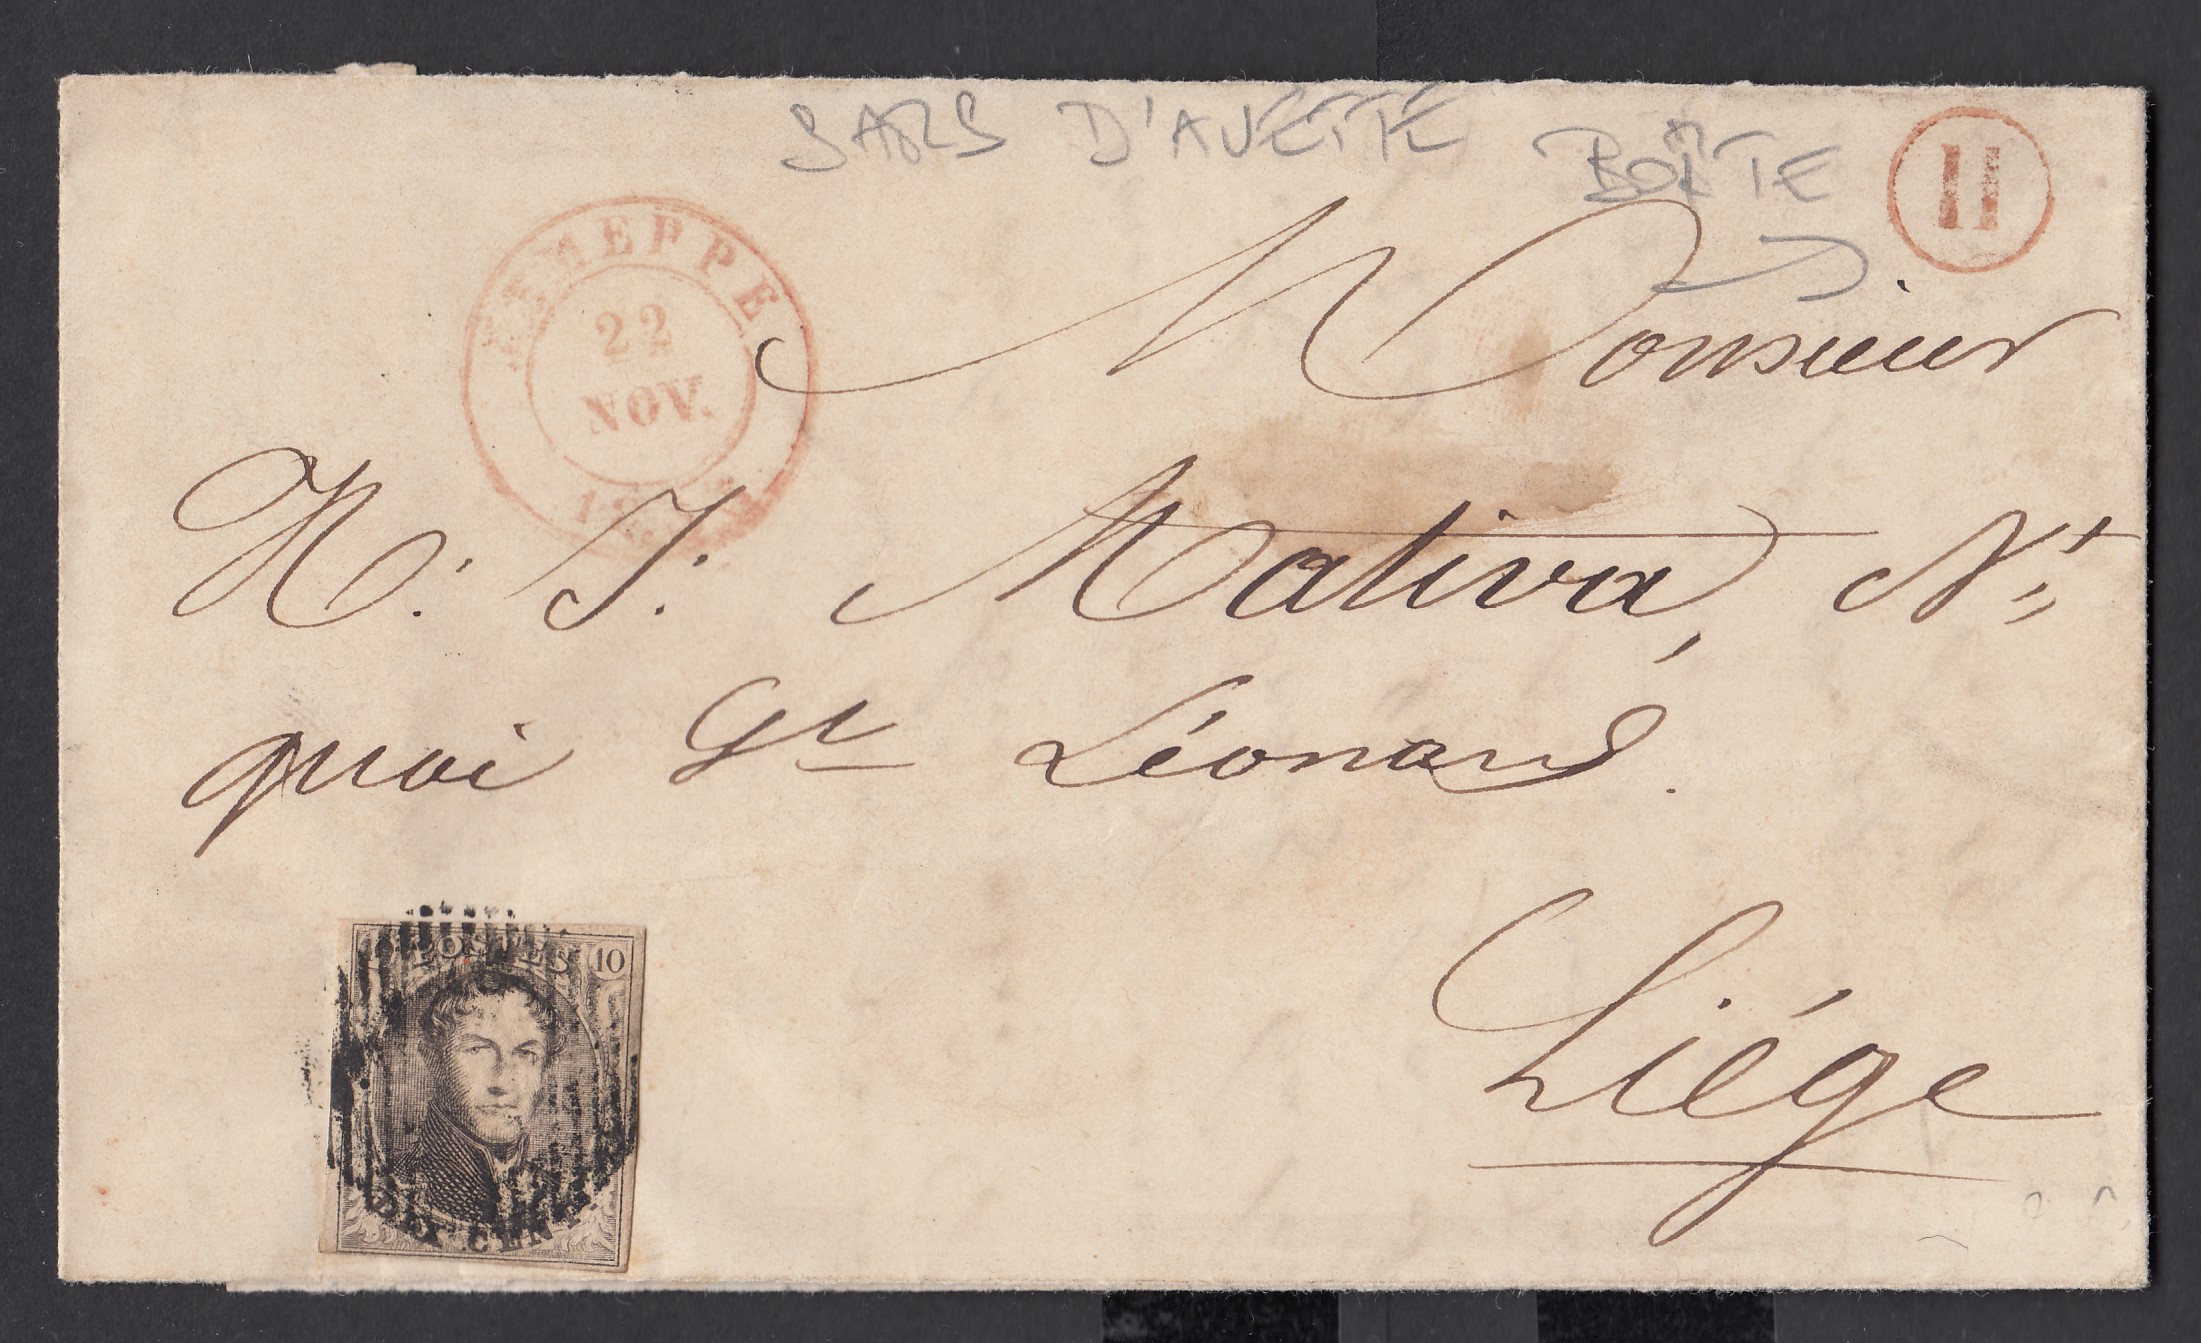 SARS D'AVETTE BOÎTE
H
JEMEPPE
22
NOV.
Monsieur
H: J: Mativa, Nt
quai St Léonard.
Liége
POSTES 10
DIX CENT.